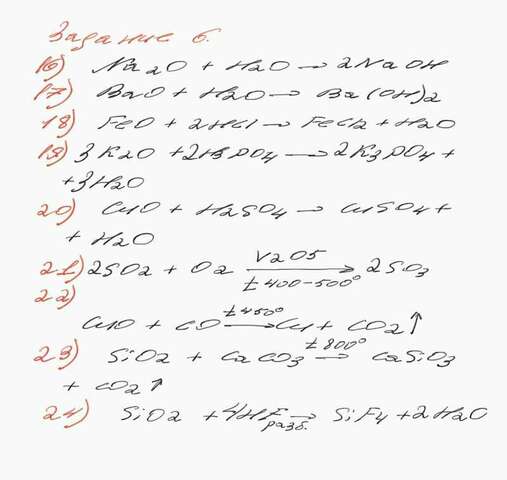 Задание 6.
16) Na2O + H2O → 2NaOH
17) BaO + H2O → Ba(OH)2
18) FeO + 2HCl → FeCl2 + H2O
19) 3K2O + 2H3PO4 → 2K3PO4 +
+ 3H2O
20) CuO + H2SO4 → CuSO4 +
+ H2O
21) 2SO2 + O2 V2O5 → t 400-500° 2SO3
22)
CuO + CO t 450° → Cu + CO2↑
23) SiO2 + CaCO3 t 800° → CaSiO3
+ CO2↑
24) SiO2 + 4HF разб. → SiF4 + 2H2O